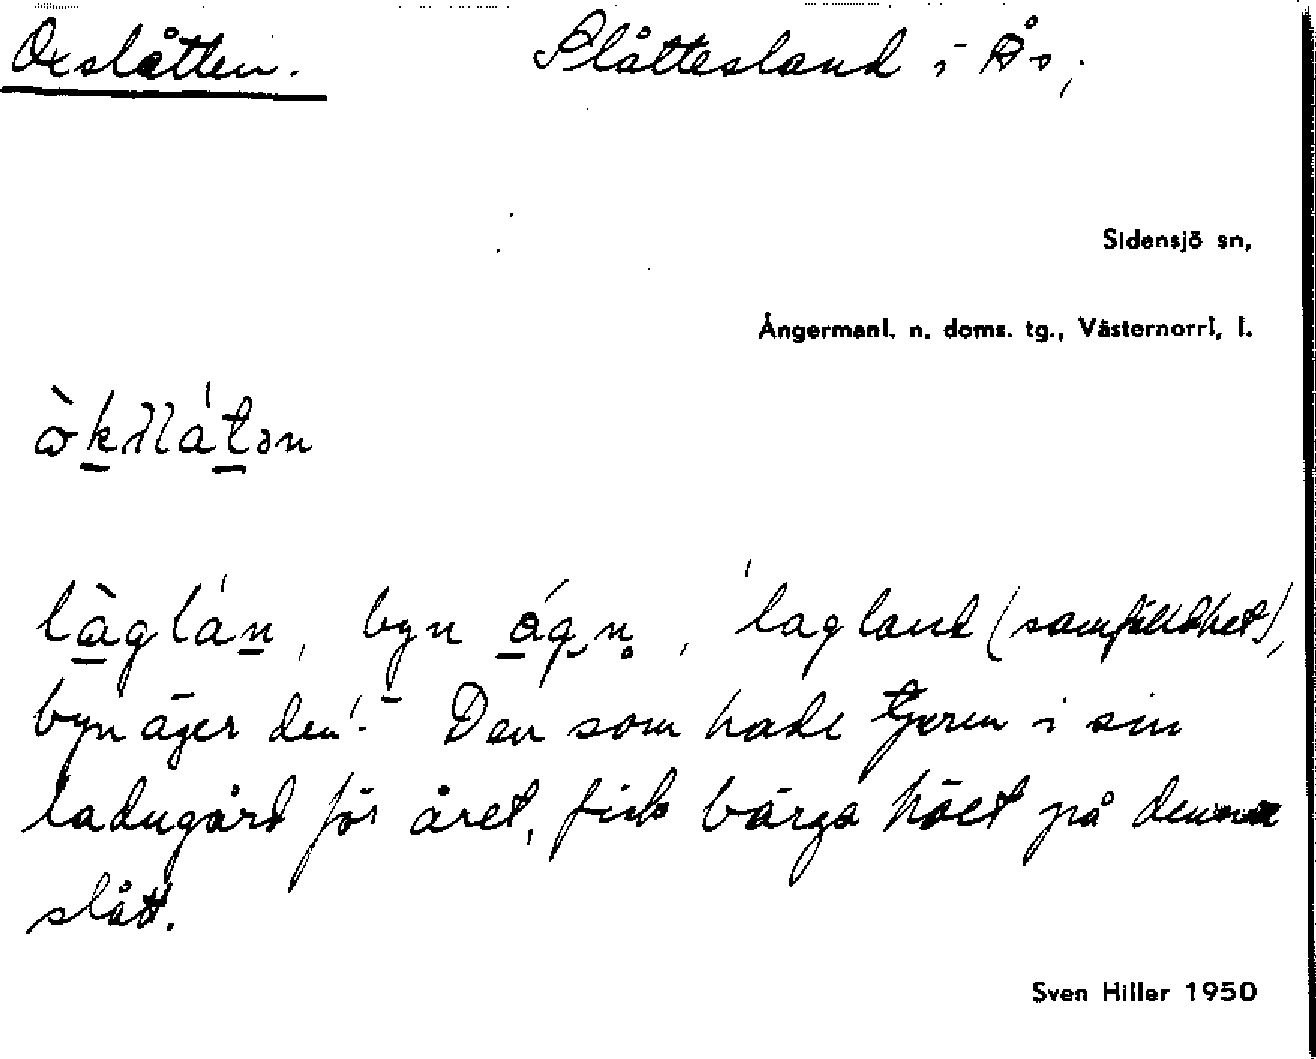 Oxslåtten. Slåttesland i Ås;
Sidensjö sn,
Ångermanl. n. doms. tg., Västernorrl, l.
byn , 'lagland (samfälldhet),
byn äger den'. – Den som hade tjuren i sin
ladugård för året, fick bärga höet på denna
slått.
Sven Hiller 1950